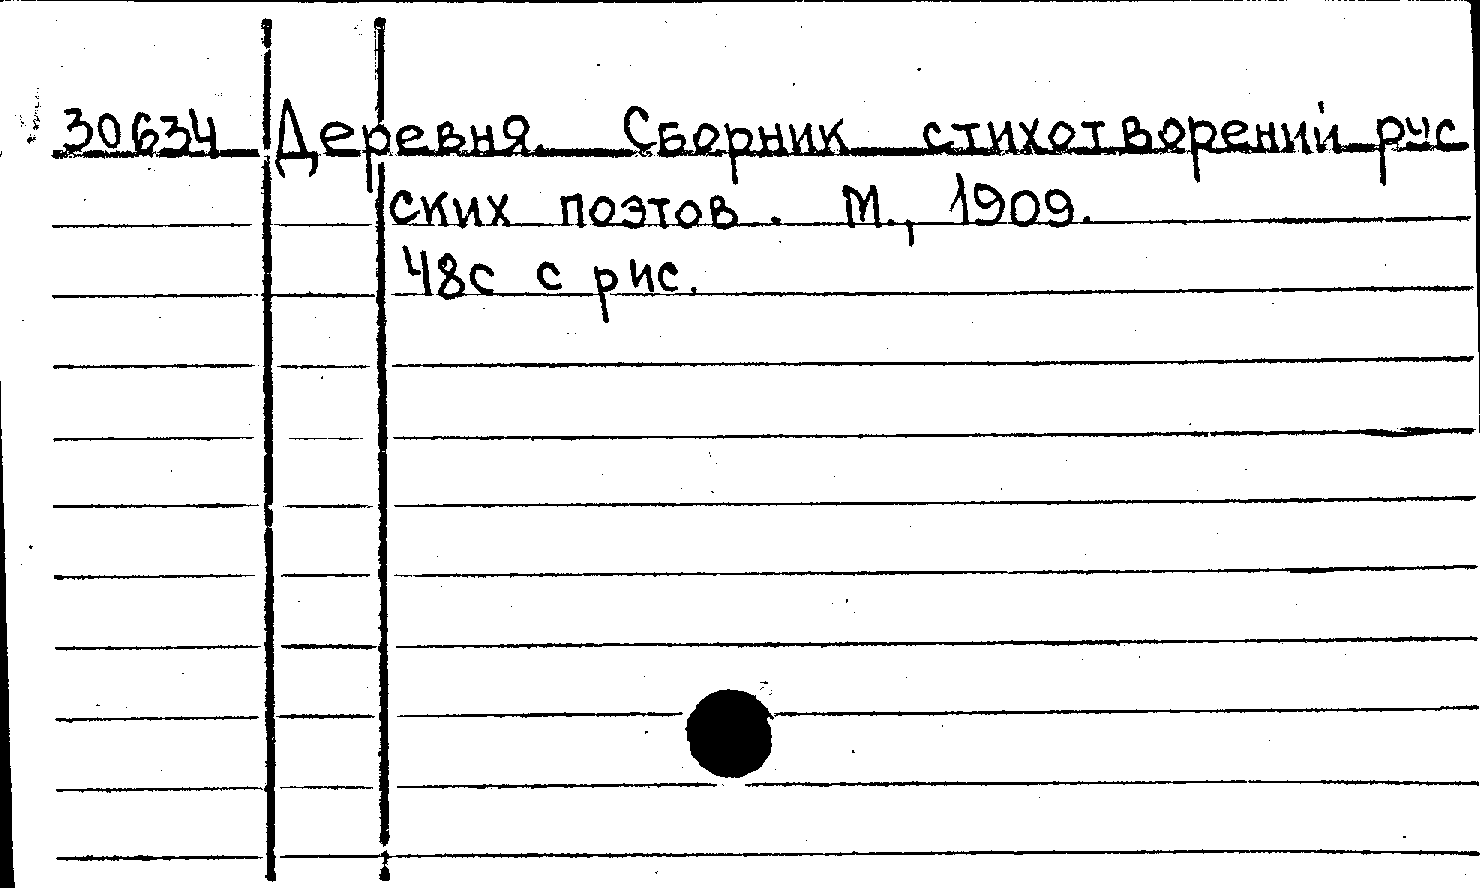 30634 Деревня. Сборник стихотворений рус
ских поэтов. М., 1909.
48с с рис.